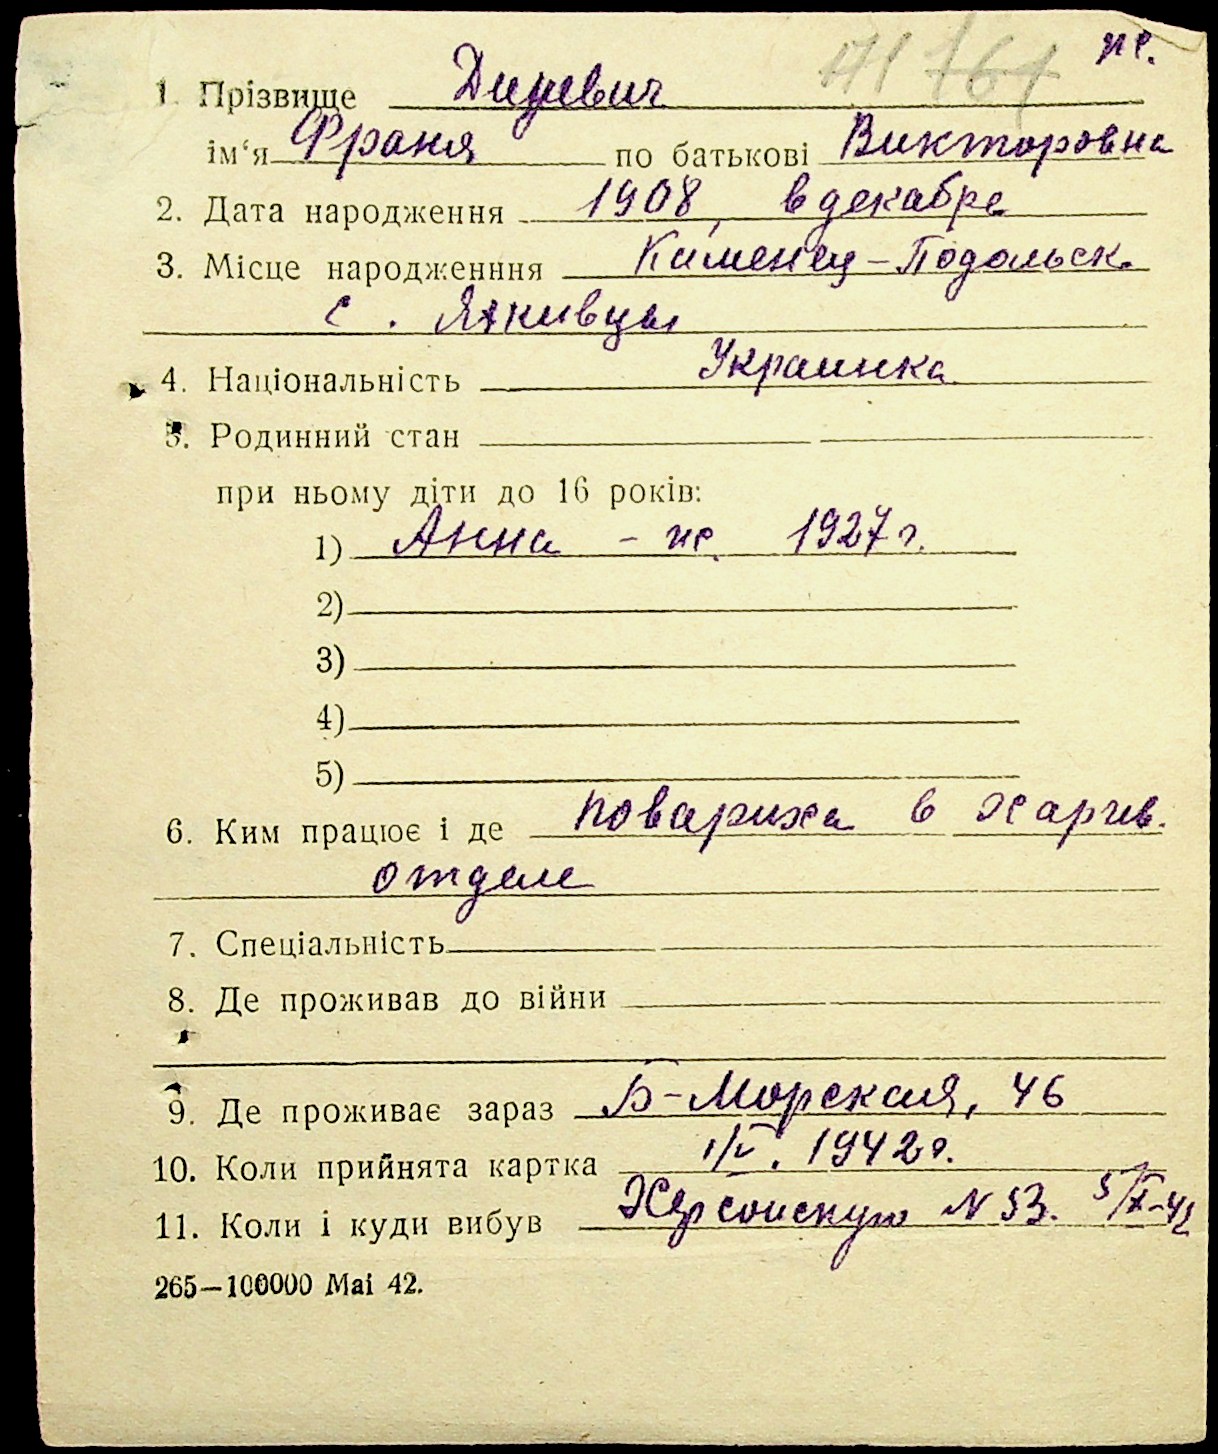 761 пе.
1. Прізвище
ім‘я Франя по батькові Викторовна
2. Дата народження 1908, в декабре
3. Місце народженння Каменец-Подольск.
с.
4. Національність Украинка
5. Родинний стан
при ньому діти до 16 років:
1) Анна - пе. 1927 г.
2)
3)
4)
5)
6. Ким працює і де повариха в Харчев.
отделе
7. Спеціальність
8. Де проживав до війни
9. Де проживає зараз Б-Морская, 46
10. Коли прийнята картка 1942 г.
11. Коли і куди вибув Херсонскую N 53.
265—100000 Mai 42.